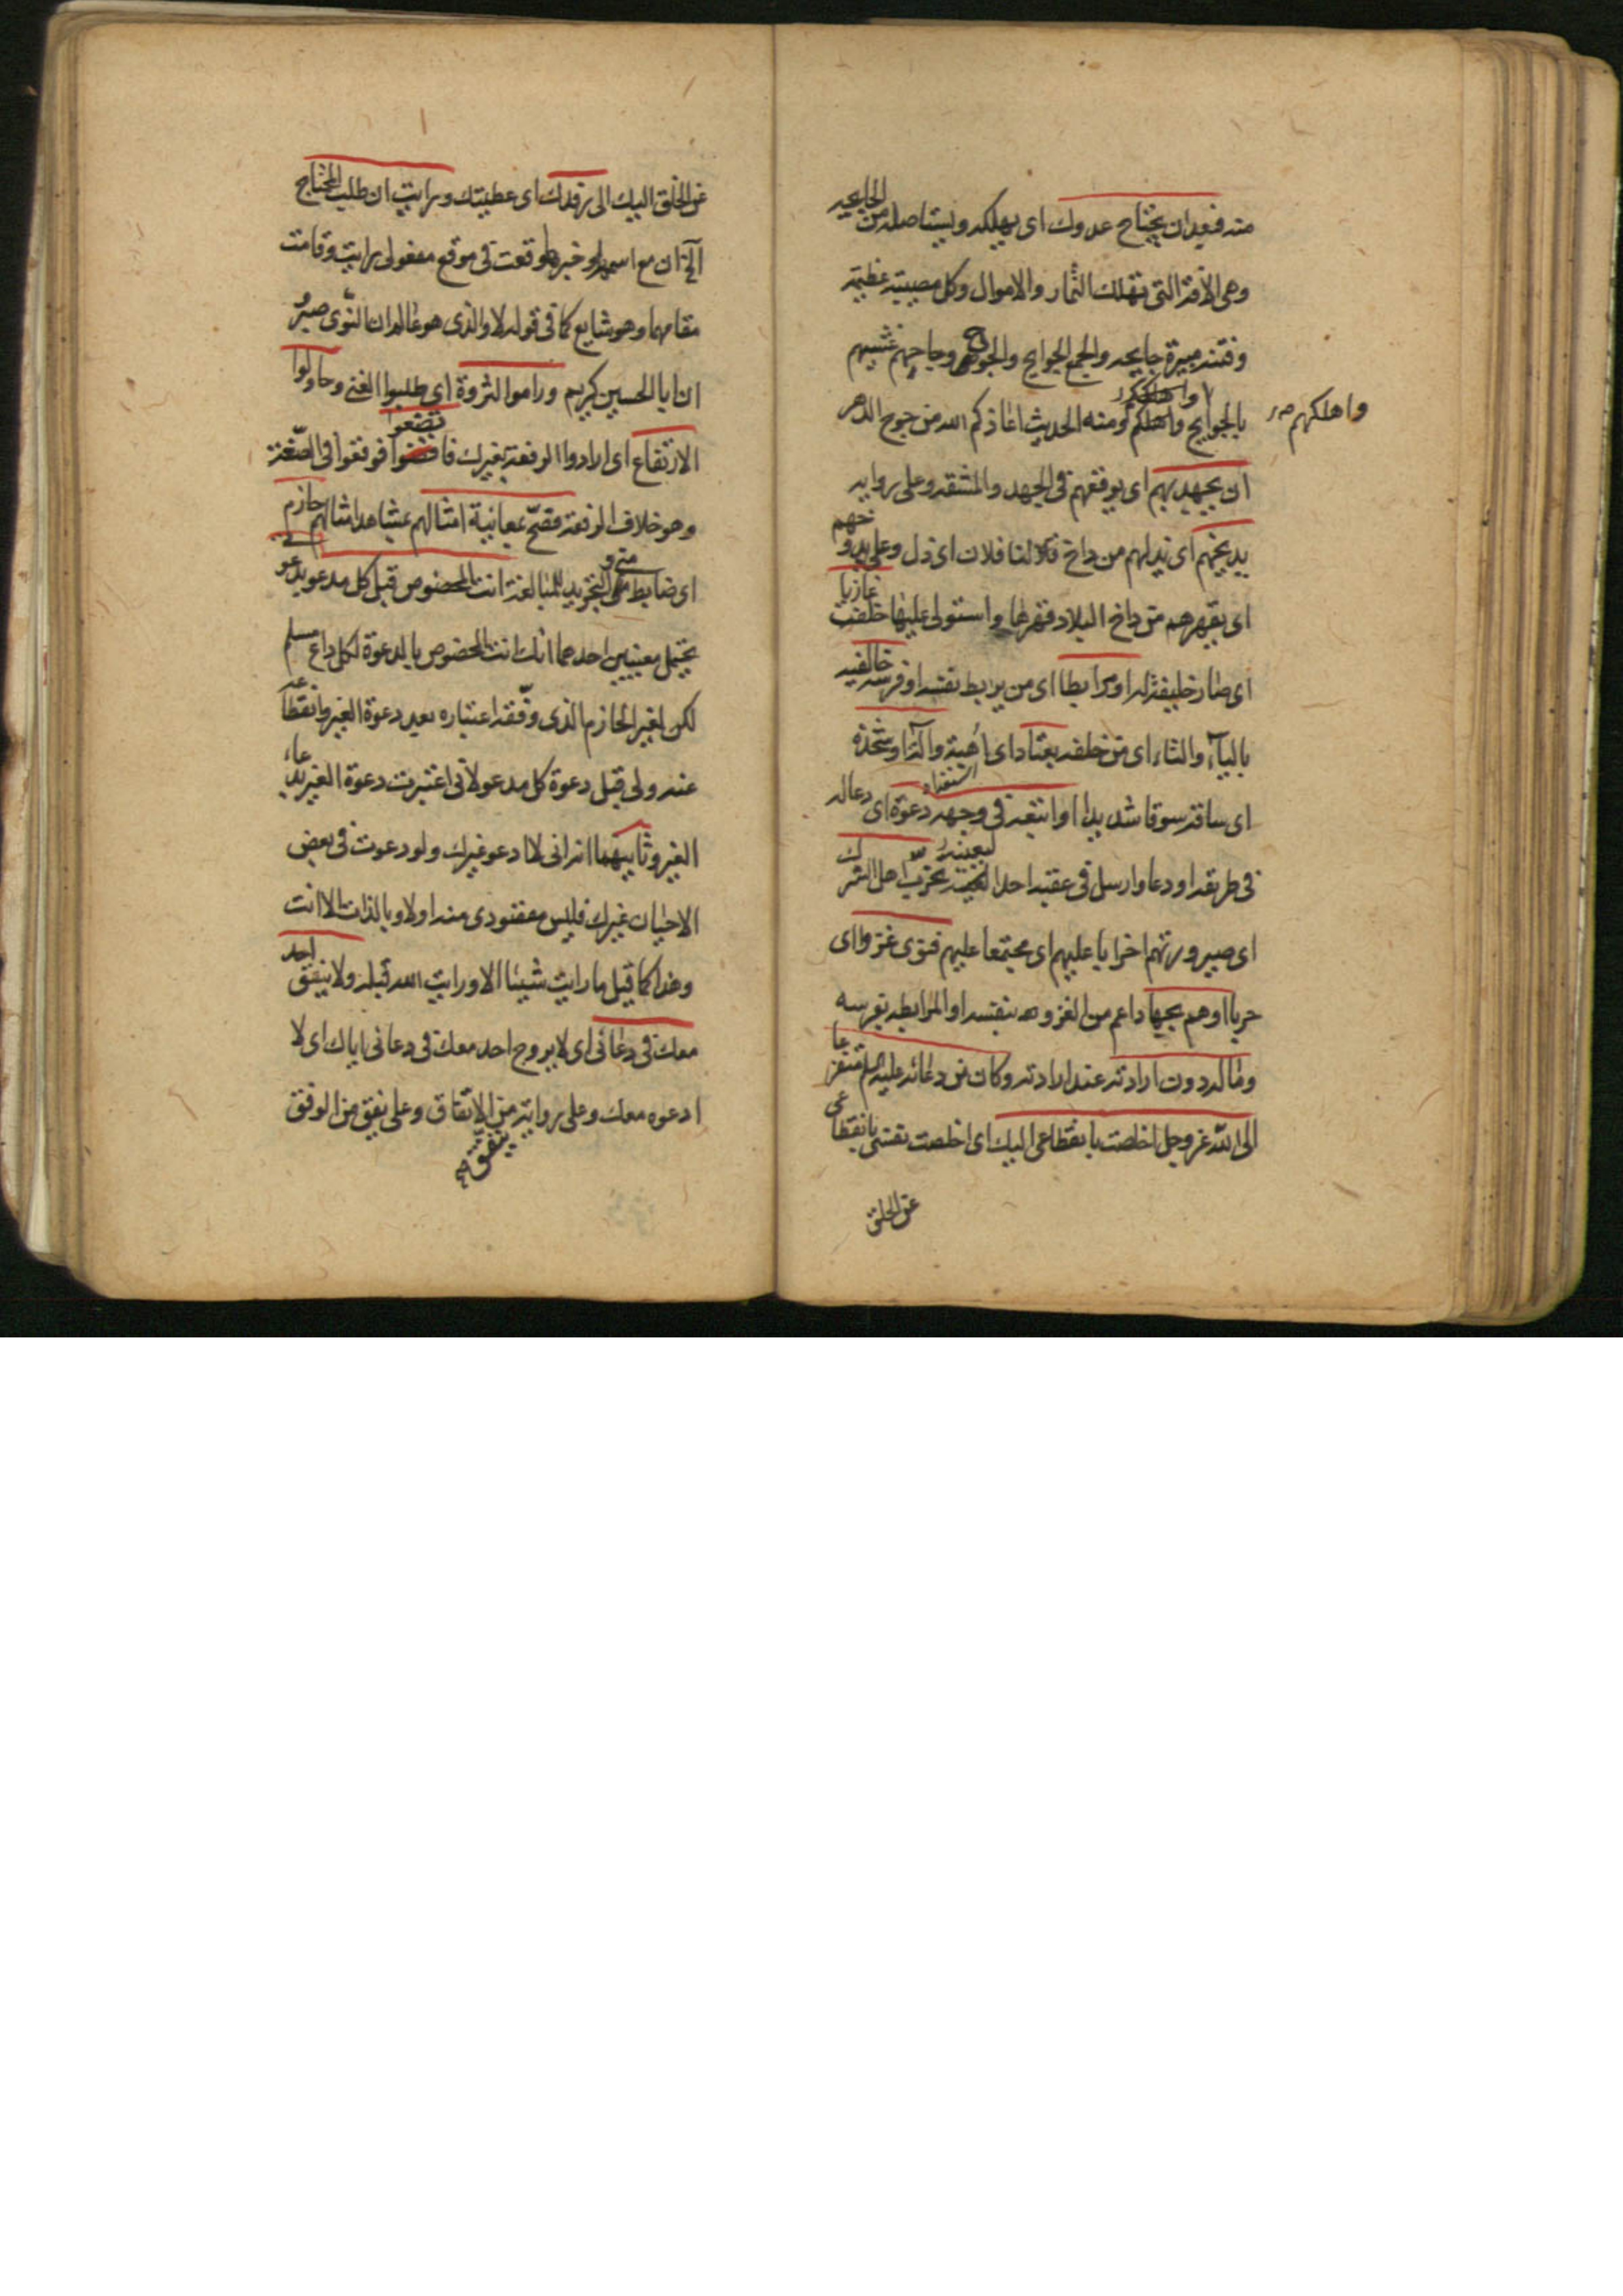 منه فيه ان يجتاح عدوك اى يهلكه ويستاصله من الجايحه
وهى الآفة التى تهلك الثمار والاموال وكل مصيبة عظيمة
وفتنة مبيرة جايحه والجمع الجوايح وجاحهم غشيهم
بالجوايح واهلكهم ومنه الحديث اعاذكم الله من جوح الدهر
واهلكهم صح
ان يجهد بهم اى يوقعهم فى الجهد والمشقه وعلى روايه
يديخهم اى يذلهم من داخ لنا فلان اى ذل وعلى يدوخهم
اى يقهرهم من داخ البلاد قهرها واستولى عليها خلف غازيا
اى صار خليفة له او مرابطا اى من يربط نفسه او فرسه خالفيه
بالياء والثاء اى من خلفه بعتاد اى اهبة وآلة او شحذه
اى ساقه سوقا شديدا او اتبعه فى وجهه دعوة اى دعا له
فى طريقه او دعا وارسل فى عقبه احدا ليعينه تحزب اهل الشرك
اى صيرورتهم احزابا عليهم اى مجتمعا عليهم فنوى غزوا اى
حربا او هم بجهاد اعم من الغزو بنفسه او المرابطه بفرسه
وحال دون ارادته عند ارادته وكان من دعائه عليه السلم متفزعا
الى الله عز وجل اخلصت بانقطاعى اليك اى اخلصت نفسى بانقطاعى
عن الخلق
عن الخلق اليك الى رفدك اى عطيتك ورايت ان طلب المحتاج
الخ ان مع اسمها وخبرها وقعت فى موقع مفعولى رايت وقامت
مقامهما وهو شايع كما فى قوله لا والذى هو عالم ان النوى صبر
ان ابا الحسين كريم وراموا الثروة اى طلبوا الغنى وحاولوا
الارتفاع اى ارادوا الرفعة بغيرك فاتضعوا فوقعوا فى الضعة
وهو خلاف الرفعة فصح بمعاينة امثالهم بمشاهد امثالهم حازم
اى ضابط التجريد للمبالغة انت المخصوص قبل كل مدعو بدعوتى
يحتمل معنيين احدهما انك انت المخصوص بالدعوة لكل داع مسلم
لكن لغير الحازم الذى وفقه اعتباره بعد دعوة الغير وانقطاعه
عنه ولى قبل دعوة كل مدعو لانى اعتبرت دعوة الغير بدعاء
الغير وثانيهما انى لا ادعو غيرك ولو دعوت فى بعض
الاحيان غيرك فليس مقصودى منه اولا وبالذات الا انت
وهذا كما قيل ما رايت شيئا الا ورايت الله قبله ولا يتفق احد
معك فى دعائى اى لا يروج احد معك فى دعائى اياك اى لا
ادعوه معك وعلى رواية من الاتفاق وعلى يفق من الوفق
يتفق